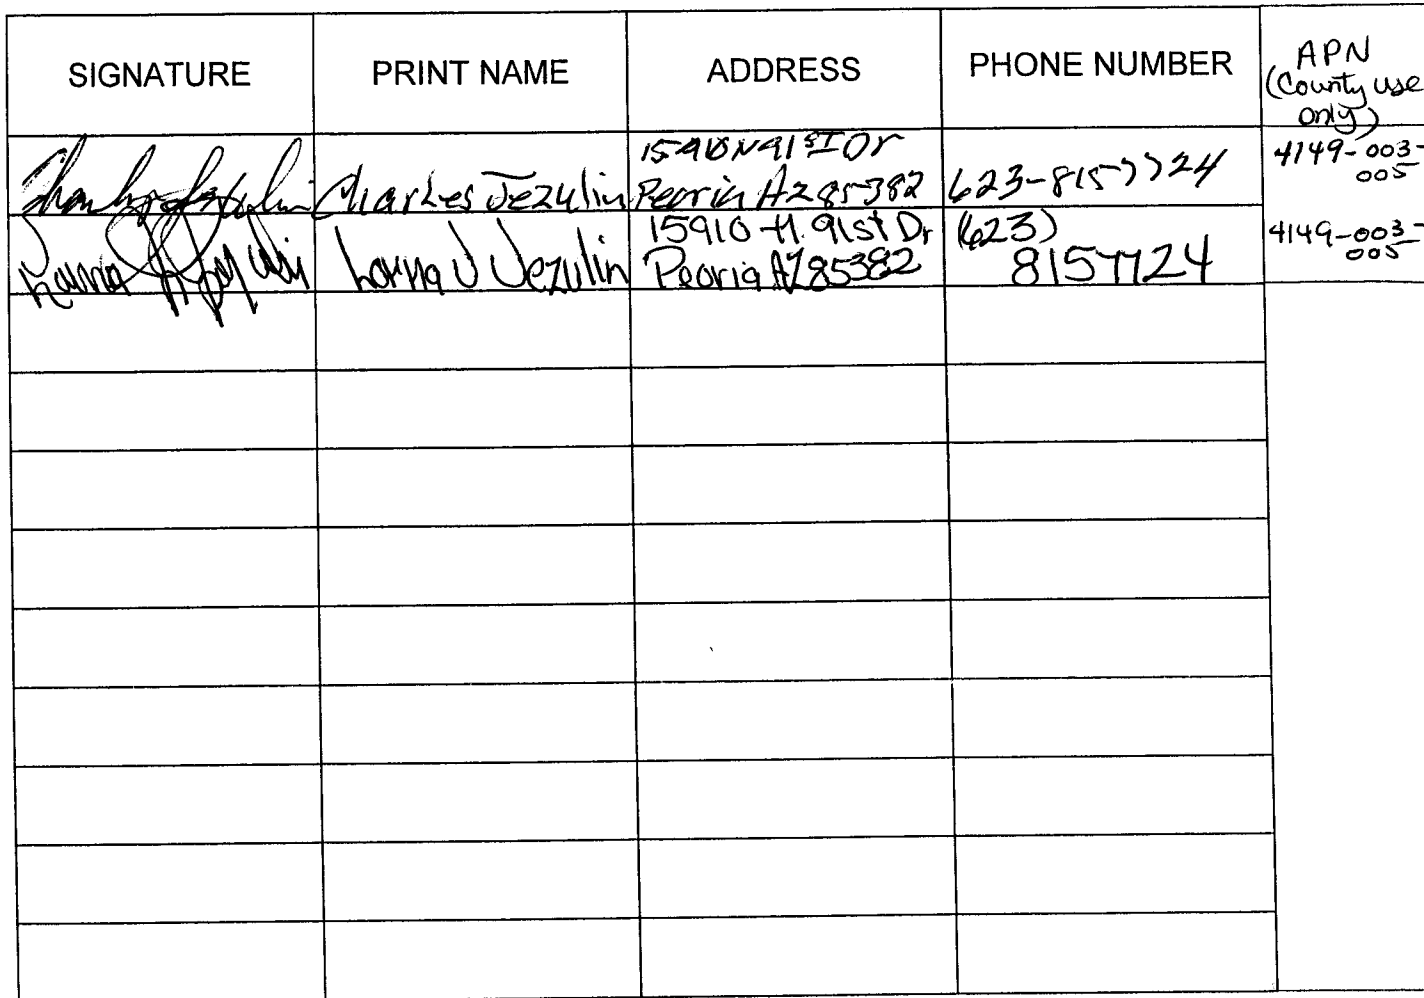 SIGNATURE PRINT NAME ADDRESS PHONE NUMBER APN
(County use
only)
Charles Jezulin Charles Jezulin 15910 N 91ST Dr
Peoria Az 85382 623-8157724 4149-003-
005
Lorna J Jezulin Lorna J Jezulin 15910 N. 91st Dr
Peoria AZ 85382 (623)
8157724 4149-003-
005